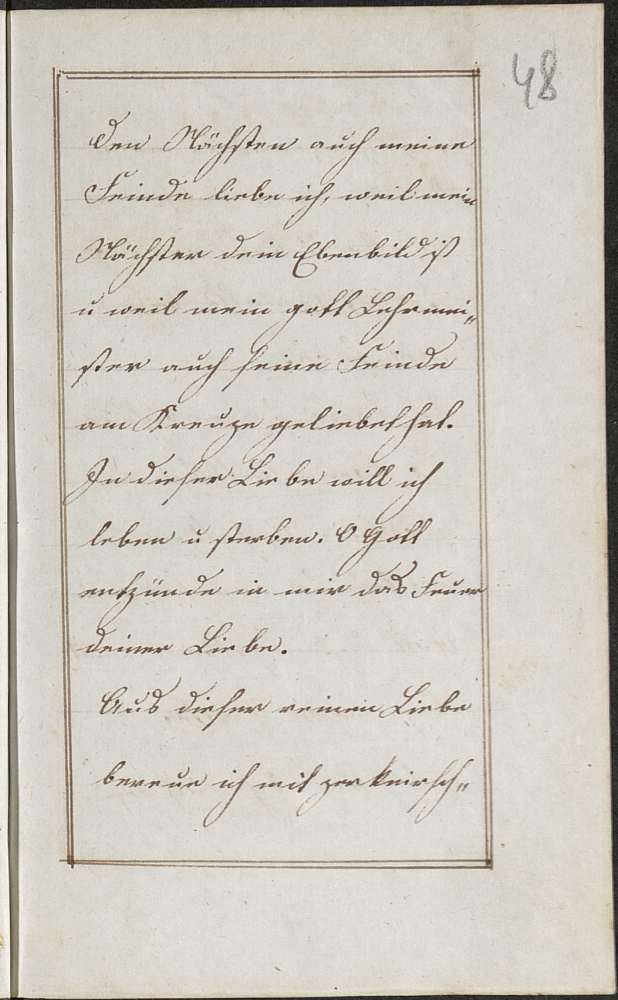 48
den Nächsten auch meine
Feinde liebe ich, weil mein
Nächster dein Ebenbild ist
u weil mein gött Lehrmei„
ster auch seine Feinde
am Kreuze geliebet hat.
In dieser Liebe will ich
leben u sterben. O Gott
entzünde in mir das Feuer
deiner Liebe.
Aus dieser reinen Liebe
bereue ich mit zerkneirsch„